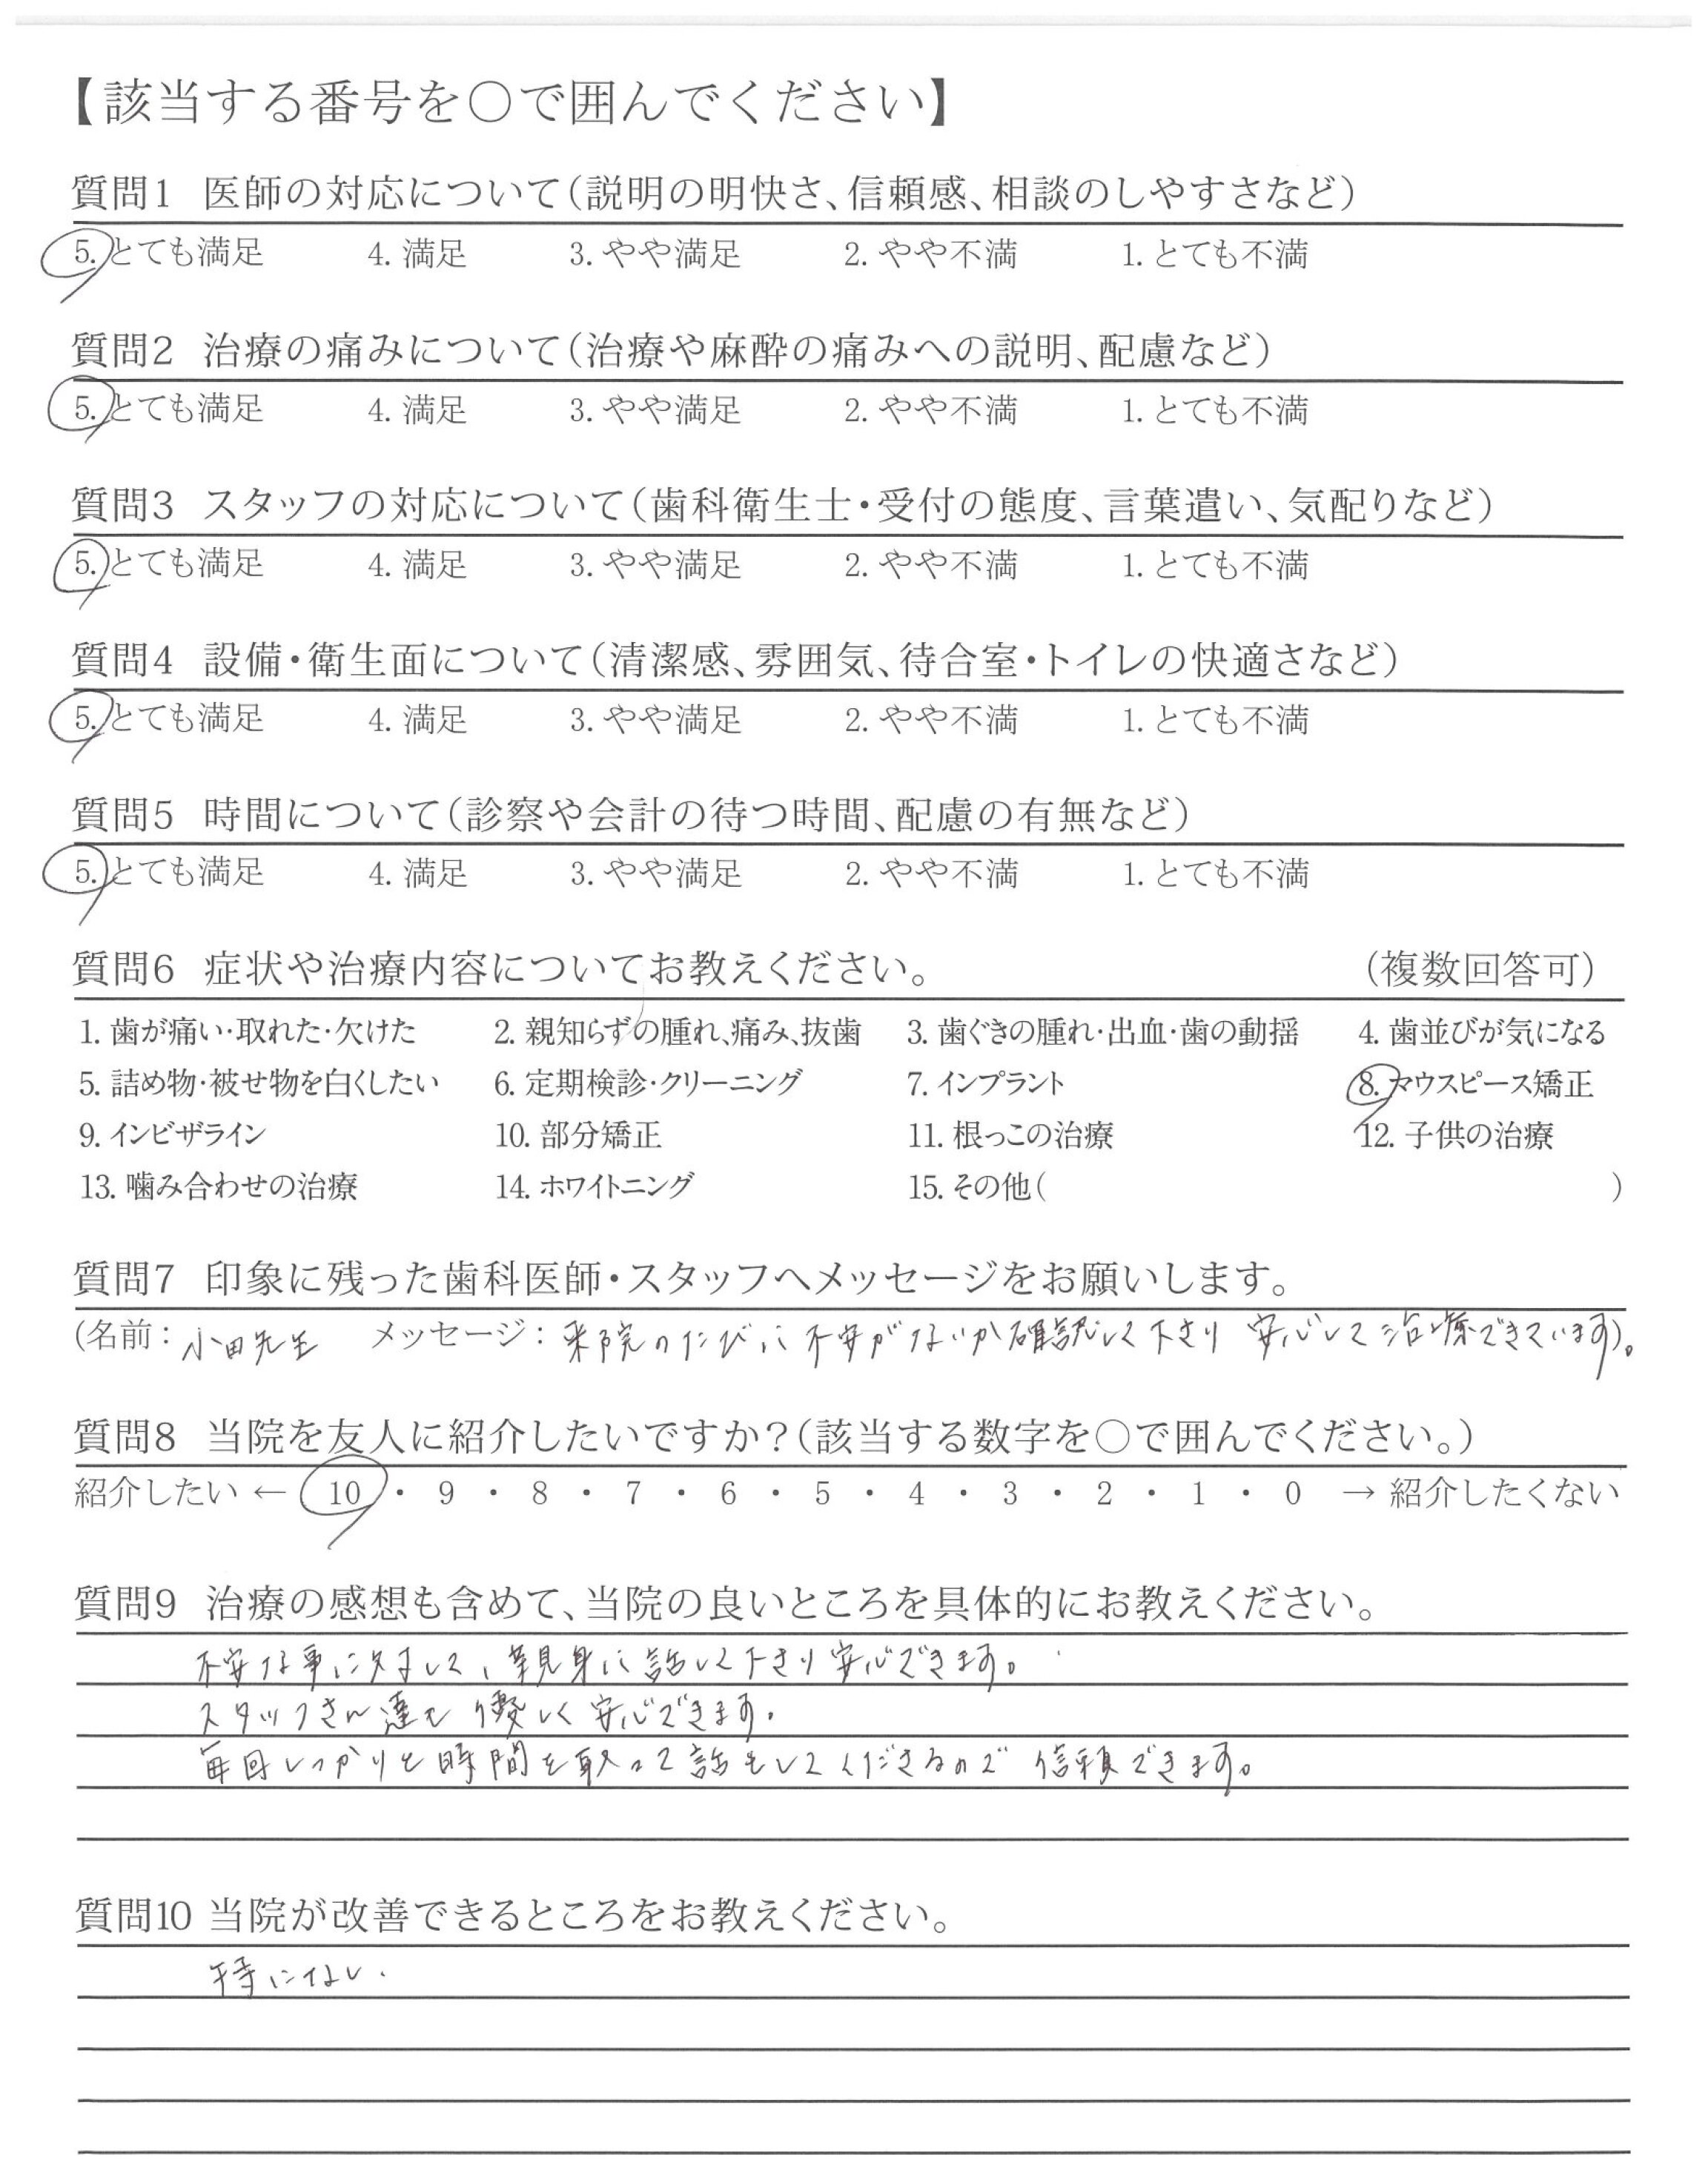 【該当する番号を○で囲んでください】
質問1 医師の対応について(説明の明快さ、信頼感、相談のしやすさなど)
5. とても満足 4. 満足 3. やや満足 2. やや不満 1. とても不満
質問2 治療の痛みについて(治療や麻酔の痛みへの説明、配慮など)
5. とても満足 4. 満足 3. やや満足 2. やや不満 1. とても不満
質問3 スタッフの対応について(歯科衛生士・受付の態度、言葉遣い、気配りなど)
5. とても満足 4. 満足 3. やや満足 2. やや不満 1. とても不満
質問4 設備・衛生面について(清潔感、雰囲気、待合室・トイレの快適さなど)
5. とても満足 4. 満足 3. やや満足 2. やや不満 1. とても不満
質問5 時間について(診察や会計の待つ時間、配慮の有無など)
5. とても満足 4. 満足 3. やや満足 2. やや不満 1. とても不満
質問6 症状や治療内容についてお教えください。 (複数回答可)
1. 歯が痛い・取れた・欠けた 2. 親知らずの腫れ、痛み、抜歯 3. 歯ぐきの腫れ・出血・歯の動揺 4. 歯並びが気になる
5. 詰め物・被せ物を白くしたい 6. 定期検診・クリーニング 7. インプラント 8. マウスピース矯正
9. インビザライン 10. 部分矯正 11. 根っこの治療 12. 子供の治療
13. 噛み合わせの治療 14. ホワイトニング 15. その他( )
質問7 印象に残った歯科医師・スタッフへメッセージをお願いします。
(名前：小田先生 メッセージ：来院のたびに不安がないか確認して下さり 安心して治療できています)。
質問8 当院を友人に紹介したいですか？(該当する数字を○で囲んでください。)
紹介したい ← 10 ・ 9 ・ 8 ・ 7 ・ 6 ・ 5 ・ 4 ・ 3 ・ 2 ・ 1 ・ 0 → 紹介したくない
質問9 治療の感想も含めて、当院の良いところを具体的にお教えください。
不安な事に対して、親身に話して下さり安心できます。
スタッフさん達も優しく安心できます。
毎回しっかりと時間を取って話をしてくださるので信頼できます。
質問10 当院が改善できるところをお教えください。
特にない.